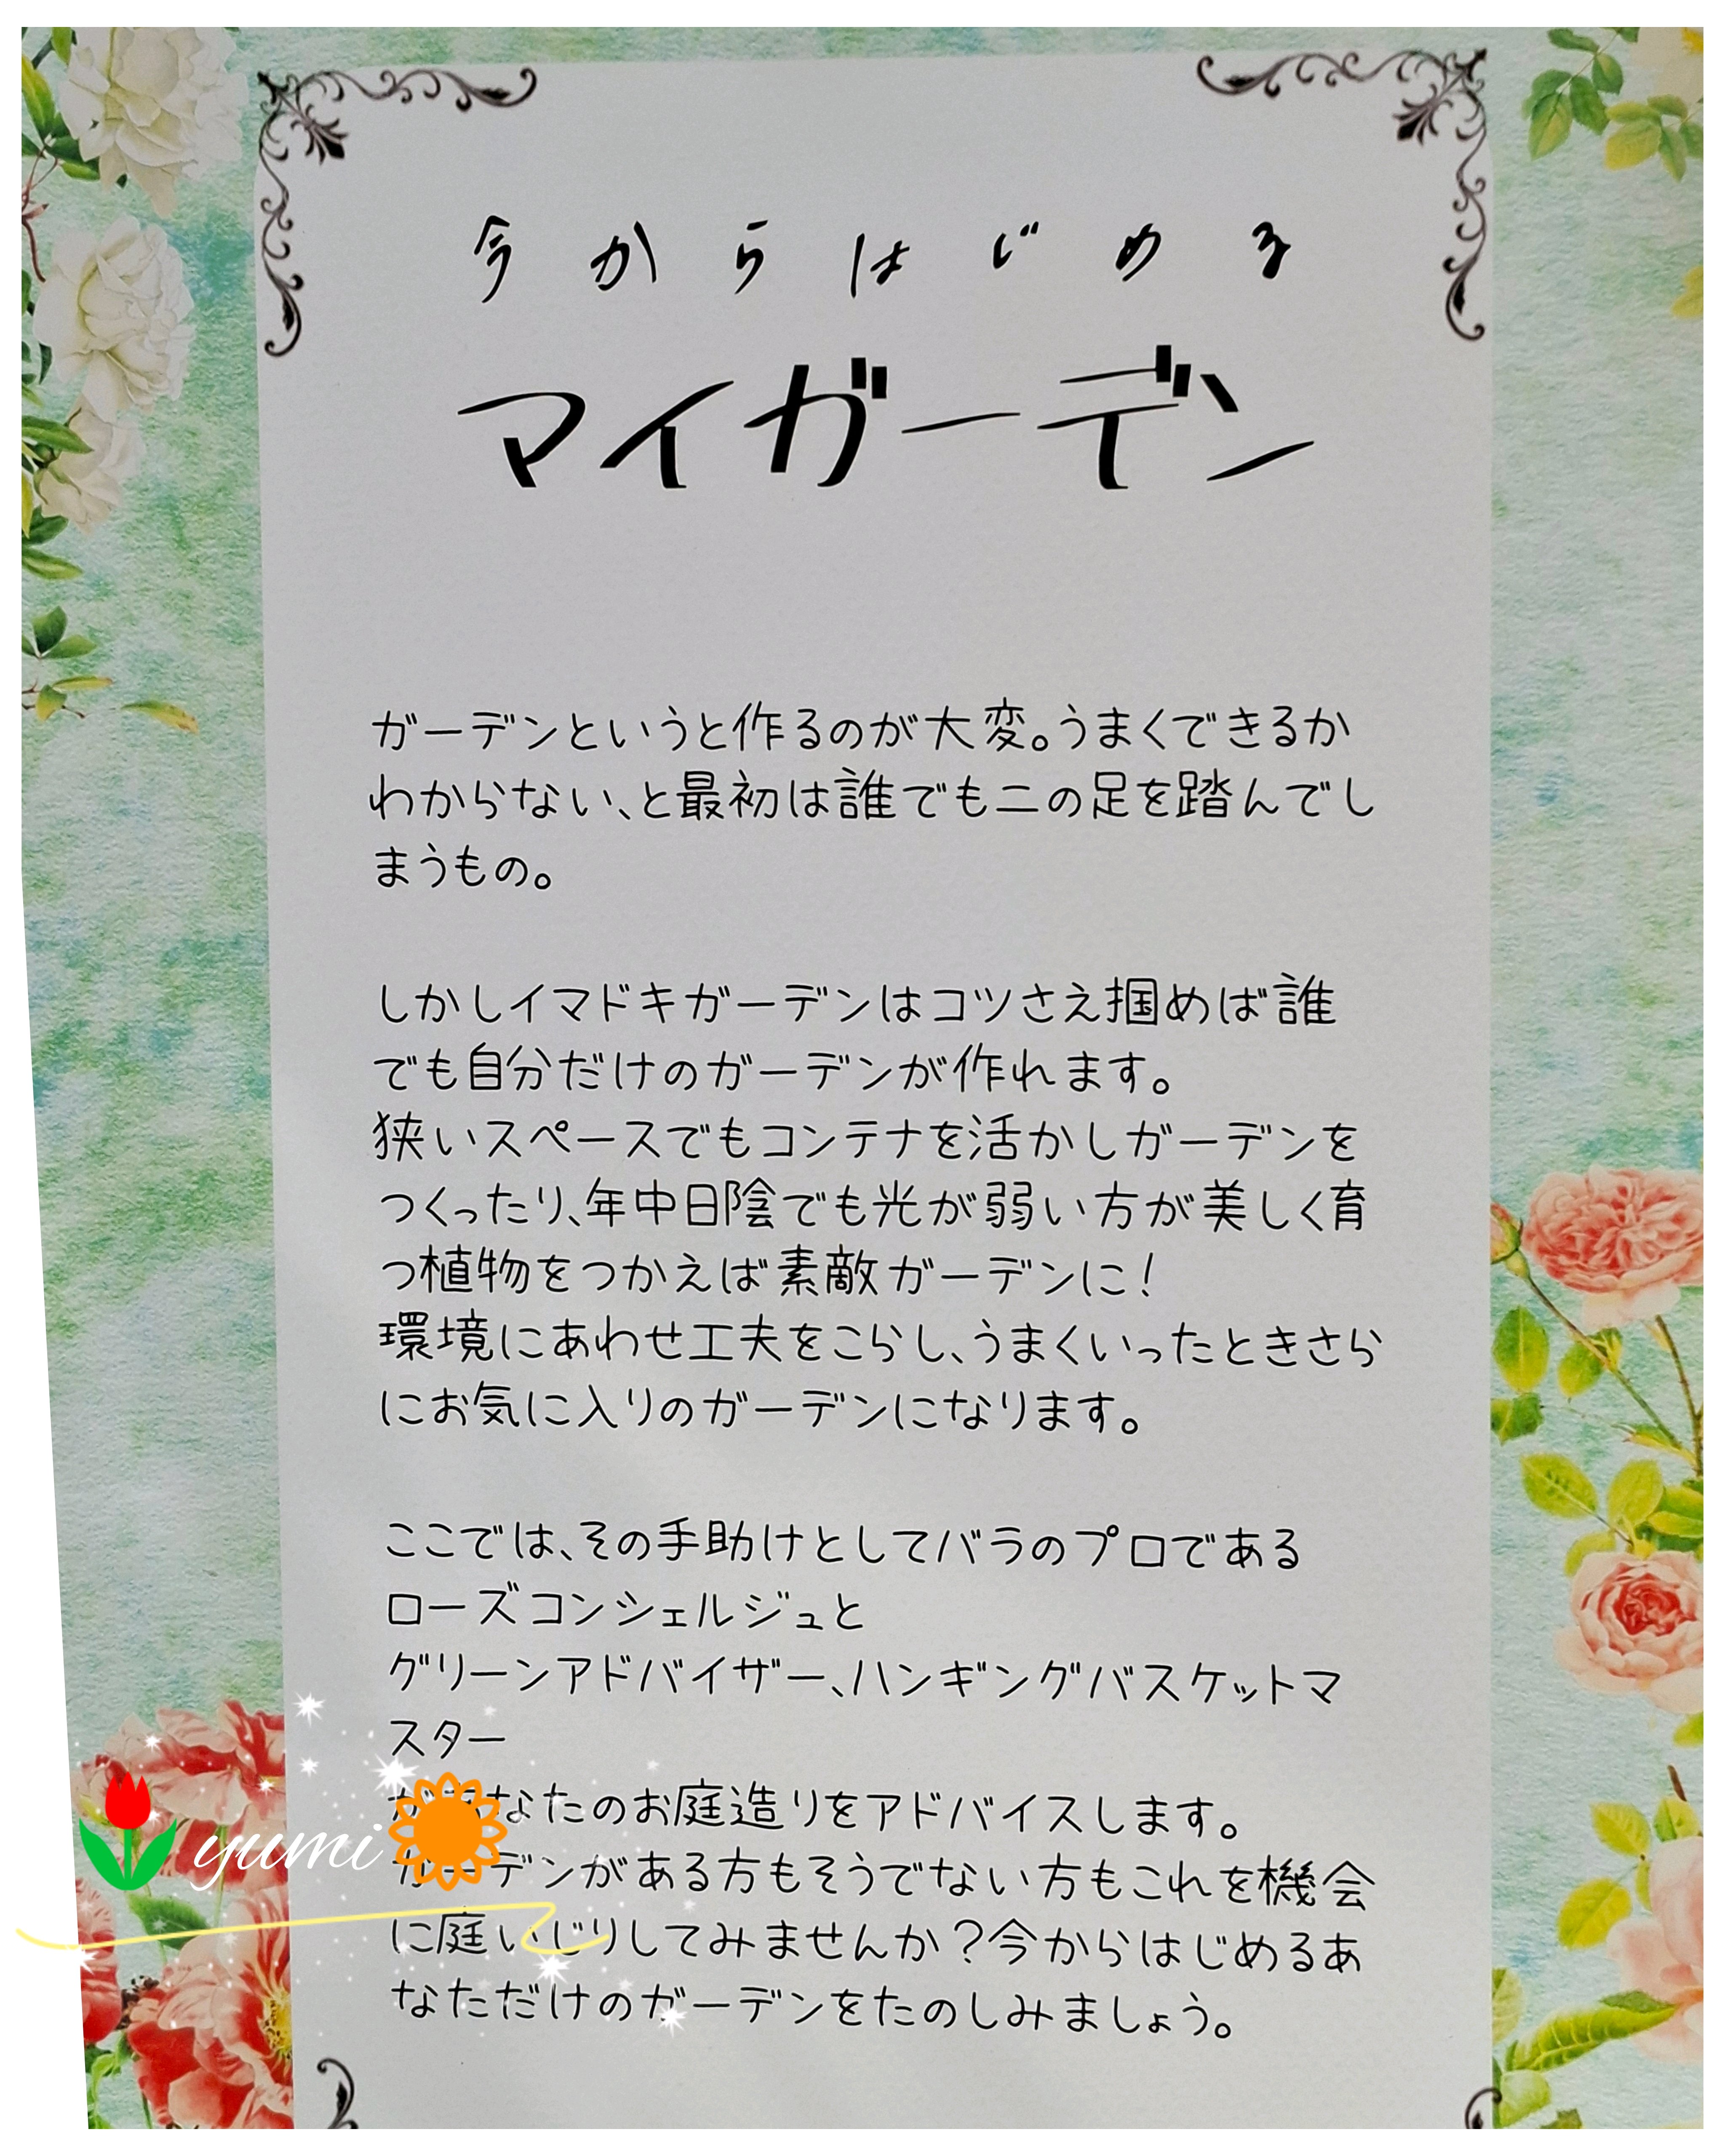 今からはじめる
マイガーデン
ガーデンというと作るのが大変。うまくできるか
わからない、と最初は誰でも二の足を踏んでし
まうもの。
しかしイマドキガーデンはコツさえ掴めば誰
でも自分だけのガーデンが作れます。
狭いスペースでもコンテナを活かしガーデンを
つくったり、年中日陰でも光が弱い方が美しく育
つ植物をつかえば素敵ガーデンに！
環境にあわせ工夫をこらし、うまくいったときさら
にお気に入りのガーデンになります。
ここでは、その手助けとしてバラのプロである
ローズコンシェルジュと
グリーンアドバイザー、ハンギングバスケットマ
スター
があなたのお庭造りをアドバイスします。
ガーデンがある方もそうでない方もこれを機会
に庭いじりしてみませんか？今からはじめるあ
なただけのガーデンをたのしみましょう。
yumi